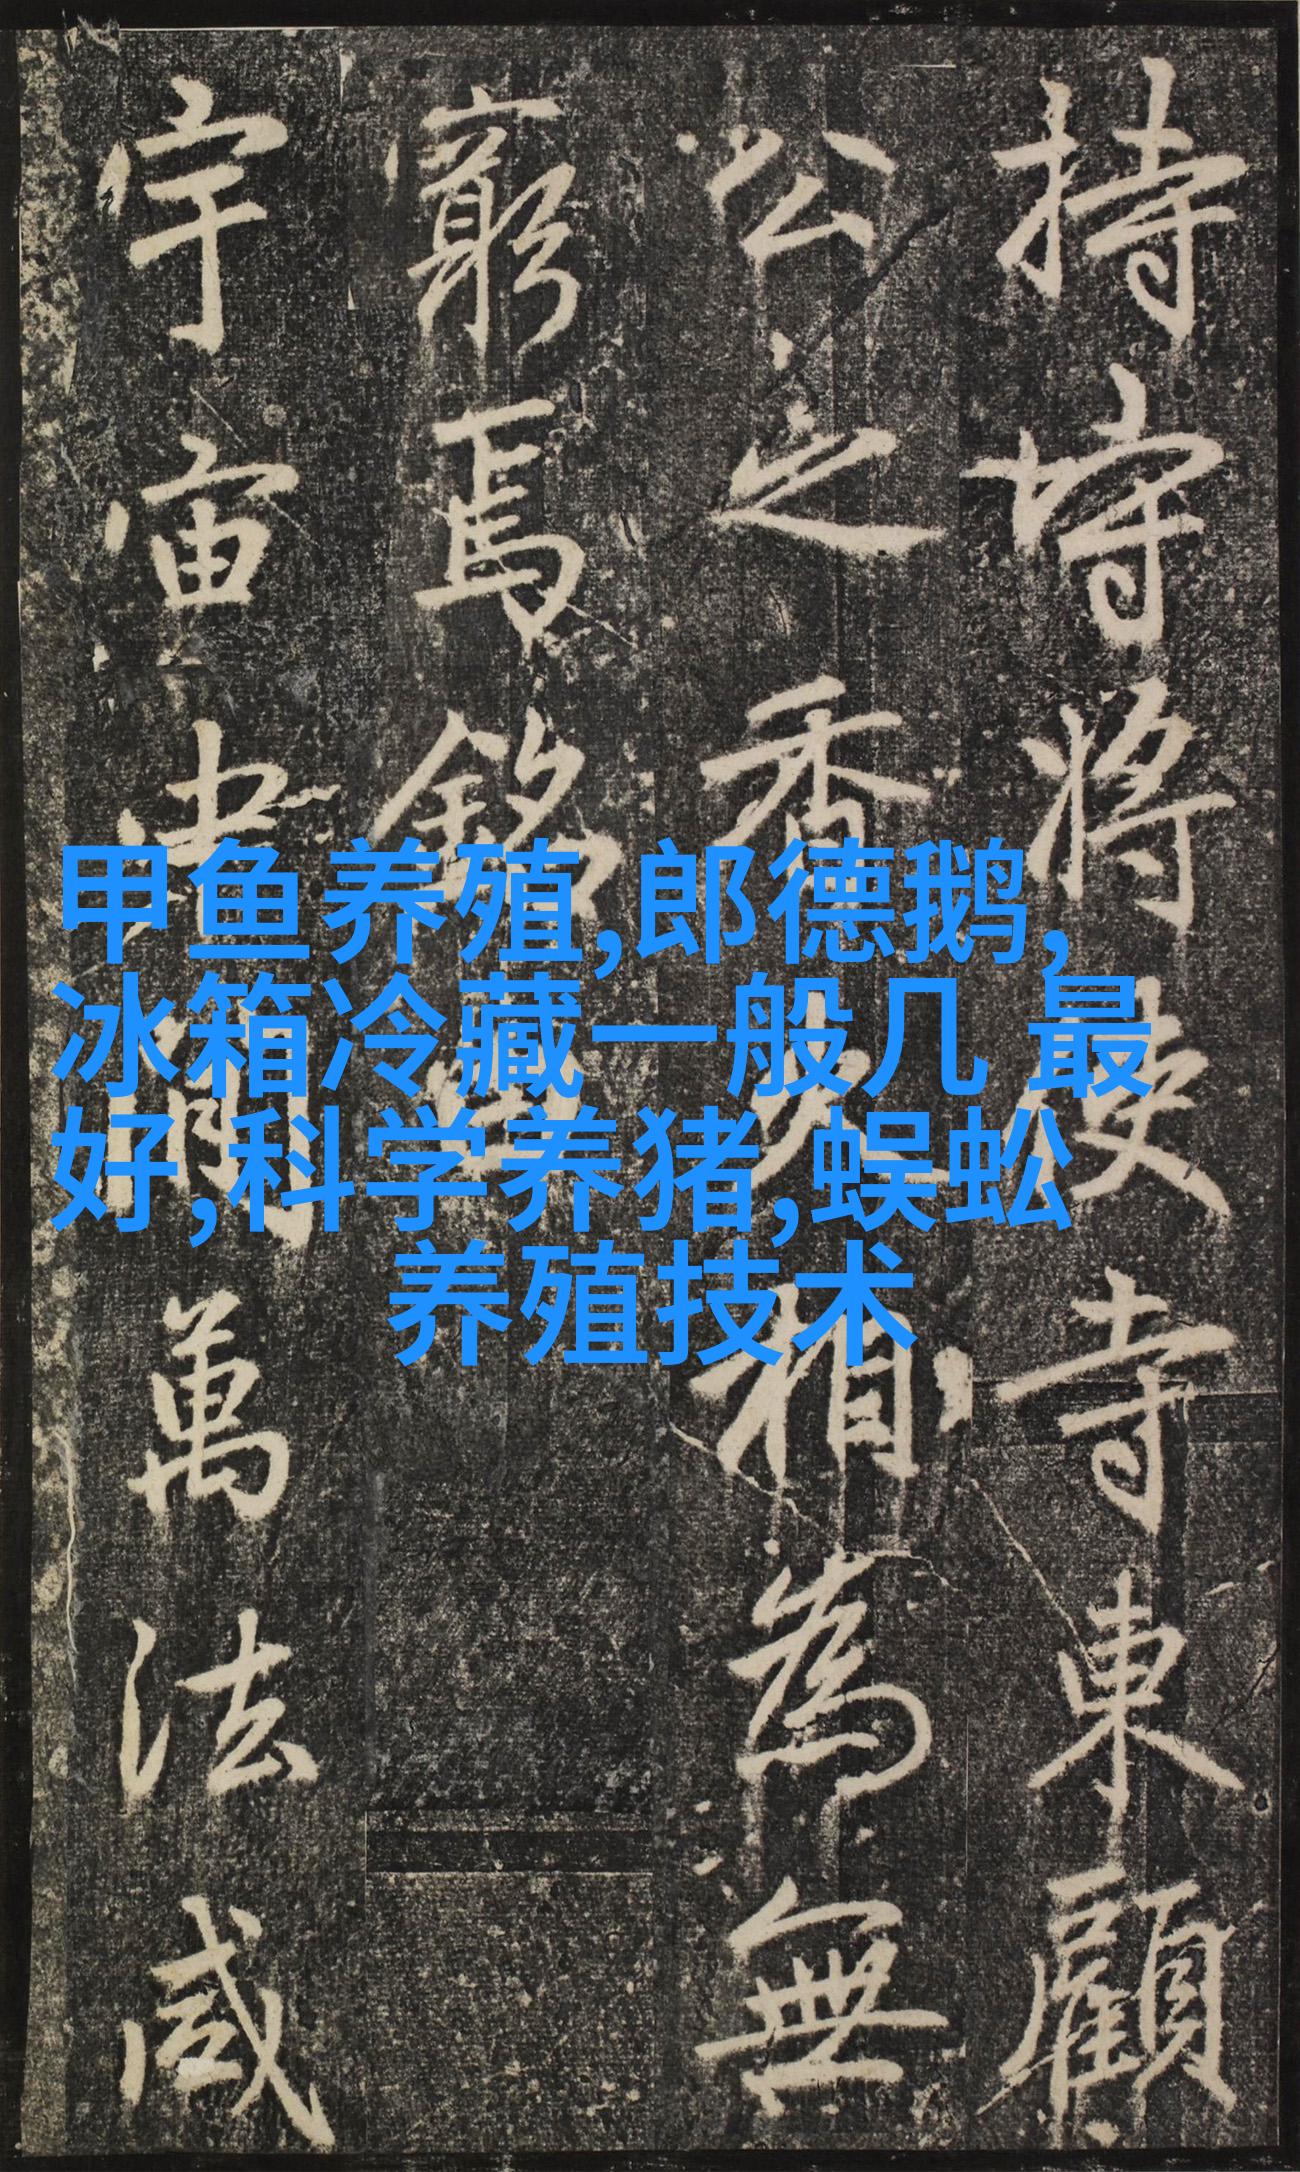 持將寺東顧
公之香火相為無
窮焉銘曰
宇宙萬法咸
甲鱼养殖,郎德鹅,
冰箱冷藏一般几 最
好,科学养猪,蜈蚣
养殖技术